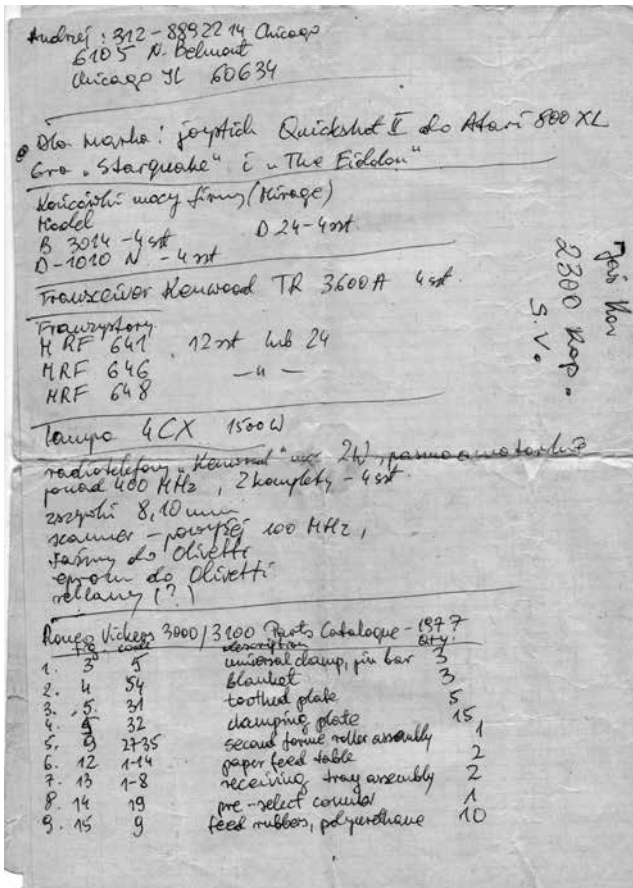 Andrzej : 312-8892214 Chicago
6105 N. Belmont
Chicago IL 60634
Dla Marka: joystick Quickshot II do Atari 800 XL
Gra „Starquake" i „The Eidolon"
Końcówki mocy firmy (Mirage)
Model
B 3014 - 4 szt D 24 - 4 szt
D-1010 N - 4 szt
Transceiver Kenwood TR 3600A 4 szt.
Tranzystory
MRF 641 12 szt lub 24
MRF 646 — „ —
MRF 648
Lampa 4CX 1500W
radiotelefony „Kenwood" 2W, pasmo amatorskie
ponad 400 MHz, 2 komplety - 4 szt.
zszywki 8, 10 mm
scanner - powyżej 100 MHz,
taśmy do Olivetti
eprom do Olivetti
reklamy (?)
2300 Kop.
S.V.
Roneo Vickers 3000/3100 Parts Catalogue - 1977
fig. code description qty.
1. 3 5 universal clamp, pin bar 3
2. 4 54 blanket 3
3. 5. 31 toothed plate 5
4. 5 32 clamping plate 15
5. 9 27-35 second forme roller assembly 1
6. 12 1-14 paper feed table 2
7. 13 1-8 receiving tray assembly 2
8. 14 19 pre-select 1
9. 15 9 feed rubbers, polyurethane 10